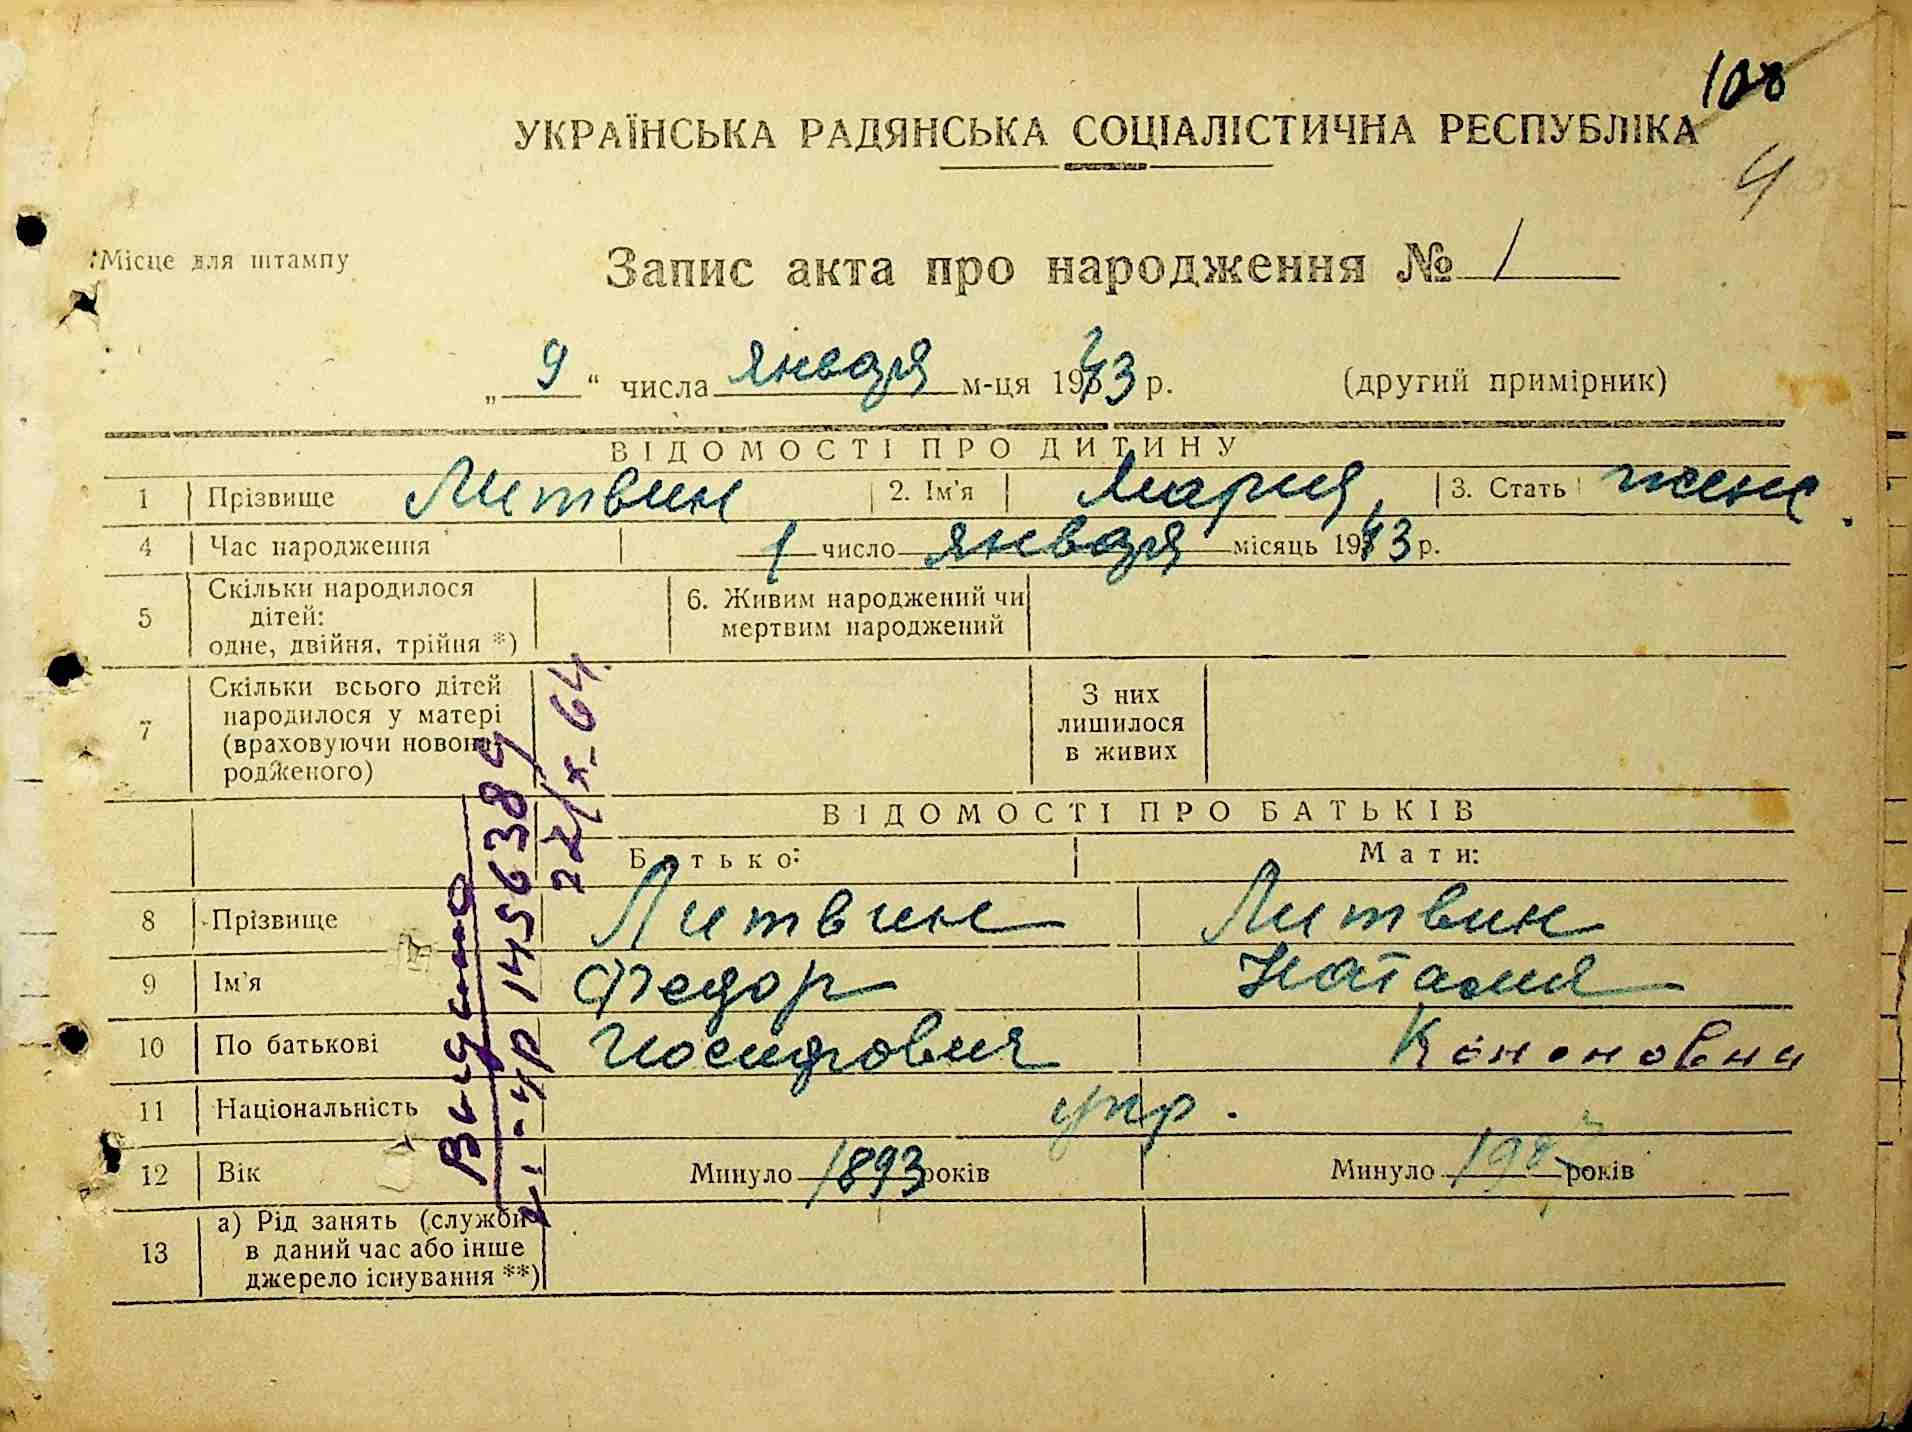 108
УКРАЇНСЬКА РАДЯНСЬКА СОЦІАЛІСТИЧНА РЕСПУБЛІКА
4
Місце для штампу
Запис акта про народження № 1
„ 9 “ числа января м-ця 1943 р. (другий примірник)
ВІДОМОСТІ ПРО ДИТИНУ
1 Прізвище Литвин 2. Ім'я Мария 3. Стать женс.
4 Час народження 1 число января місяць 1943 р.
5 Скільки народилося дітей: одне, двійня, трійня *) 6. Живим народжений чи мертвим народжений
7 Скільки всього дітей народилося у матері (враховуючи новонародженого) З них лишилося в живих
ВІДОМОСТІ ПРО БАТЬКІВ
Батько: Мати:
8 Прізвище Литвин Литвин
9 Ім'я Федор Наталия
10 По батькові Иосифович Кононовна
11 Національність укр.
12 Вік Минуло 1893 років Минуло років
13 а) Рід занять (служби в даний час або інше джерело існування **)
Выдано
II-УР 1456389
22/X-64.